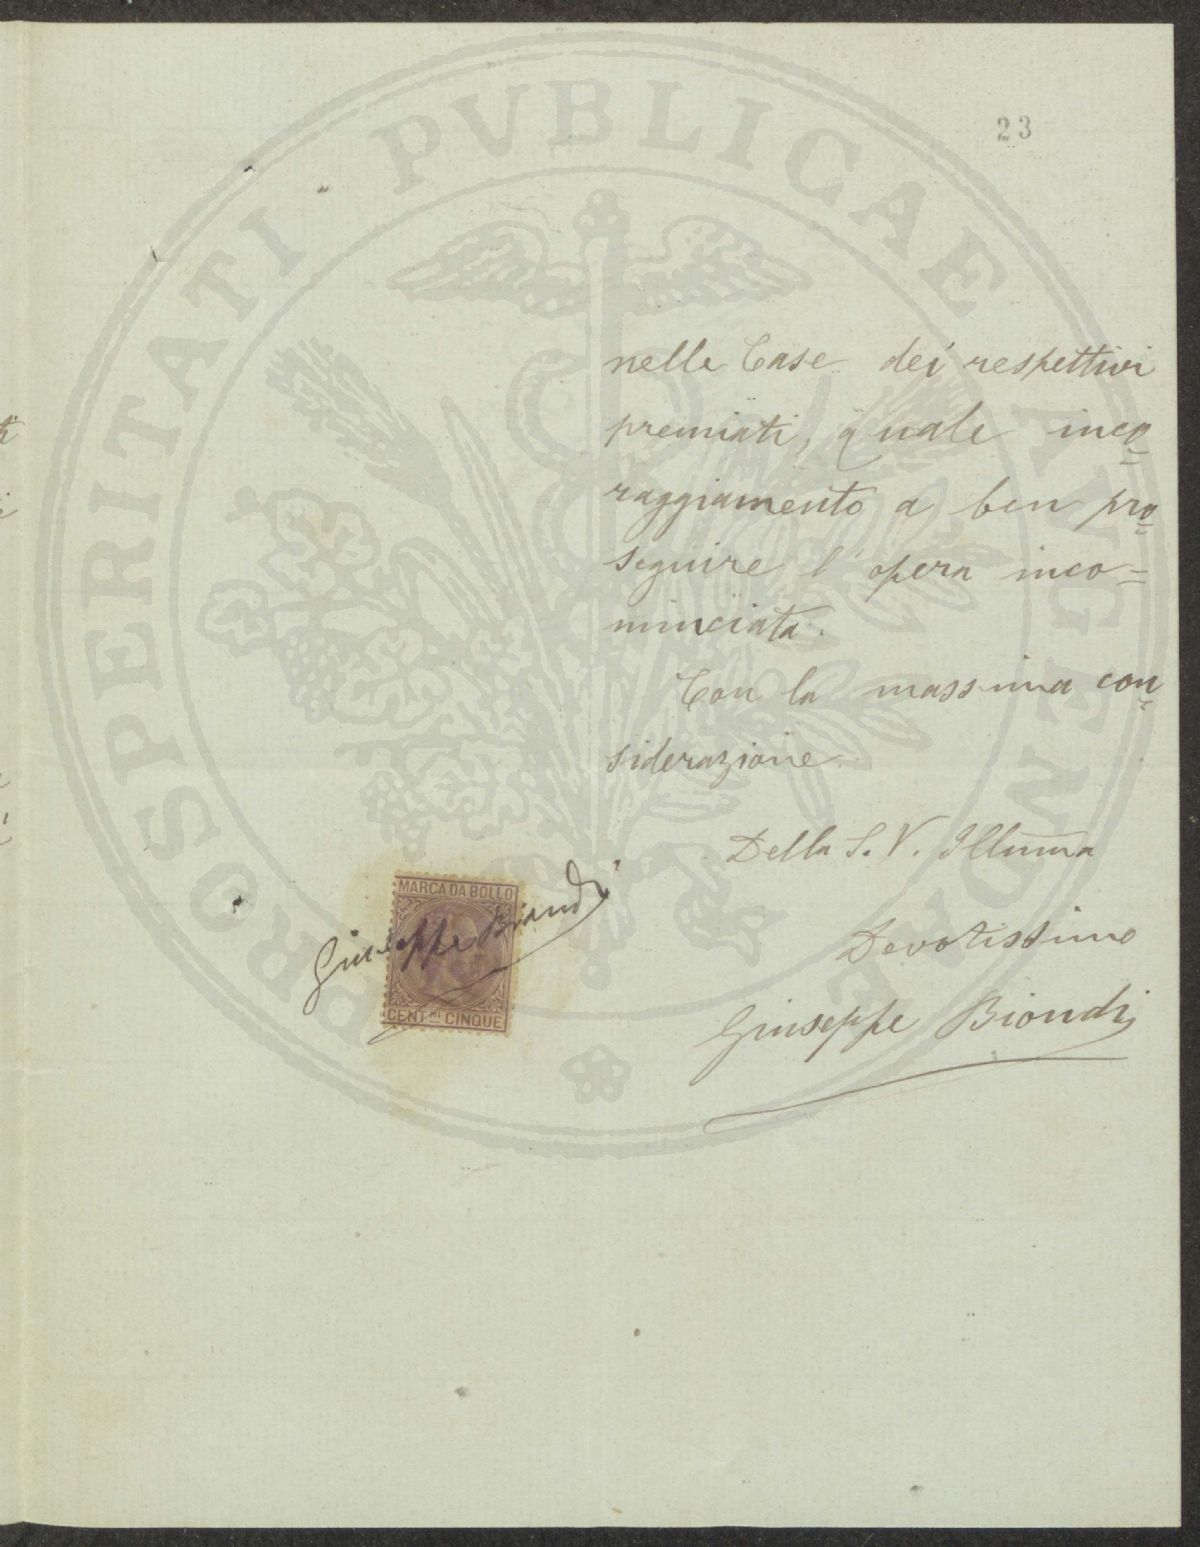 23
PROSPERITATI PVBLICAE AVGENDAE
nelle Case dei respettivi
premiati, quale inco=
raggiamento a ben pro=
seguire l'opera inco=
minciata.
Con la massima con=
siderazione.
Della S. V. Illuma
Devotissimo
Giuseppe Biondi
MARCA DA BOLLO
Giuseppe Biondi
CENT.MI CINQUE